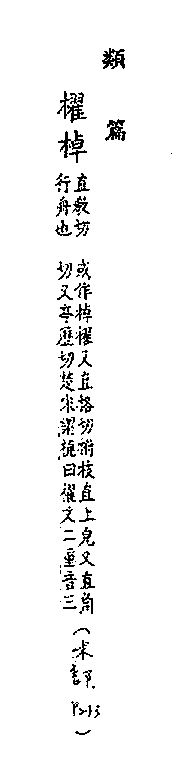 類篇
櫂棹
直教切
行舟也
或作棹櫂又直格切梢枝直上皃又直角
切又亭歷切楚宋梁抗曰櫂文二重音三
(木部 P213)